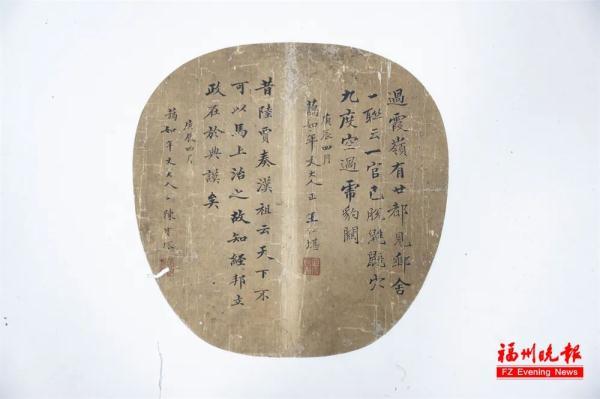 過霞嶺有廿都見郵舍
一聯云一官已脫鼪鼯穴
九度空過虎豹關
庚辰四月
藹如年丈大人正 王仁堪
昔陸賈奏漢祖云天下不
可以馬上治之故知經邦立
政在於典謨矣
庚辰四月
藹如年丈大人 陳
福州晚报
FZ Evening News